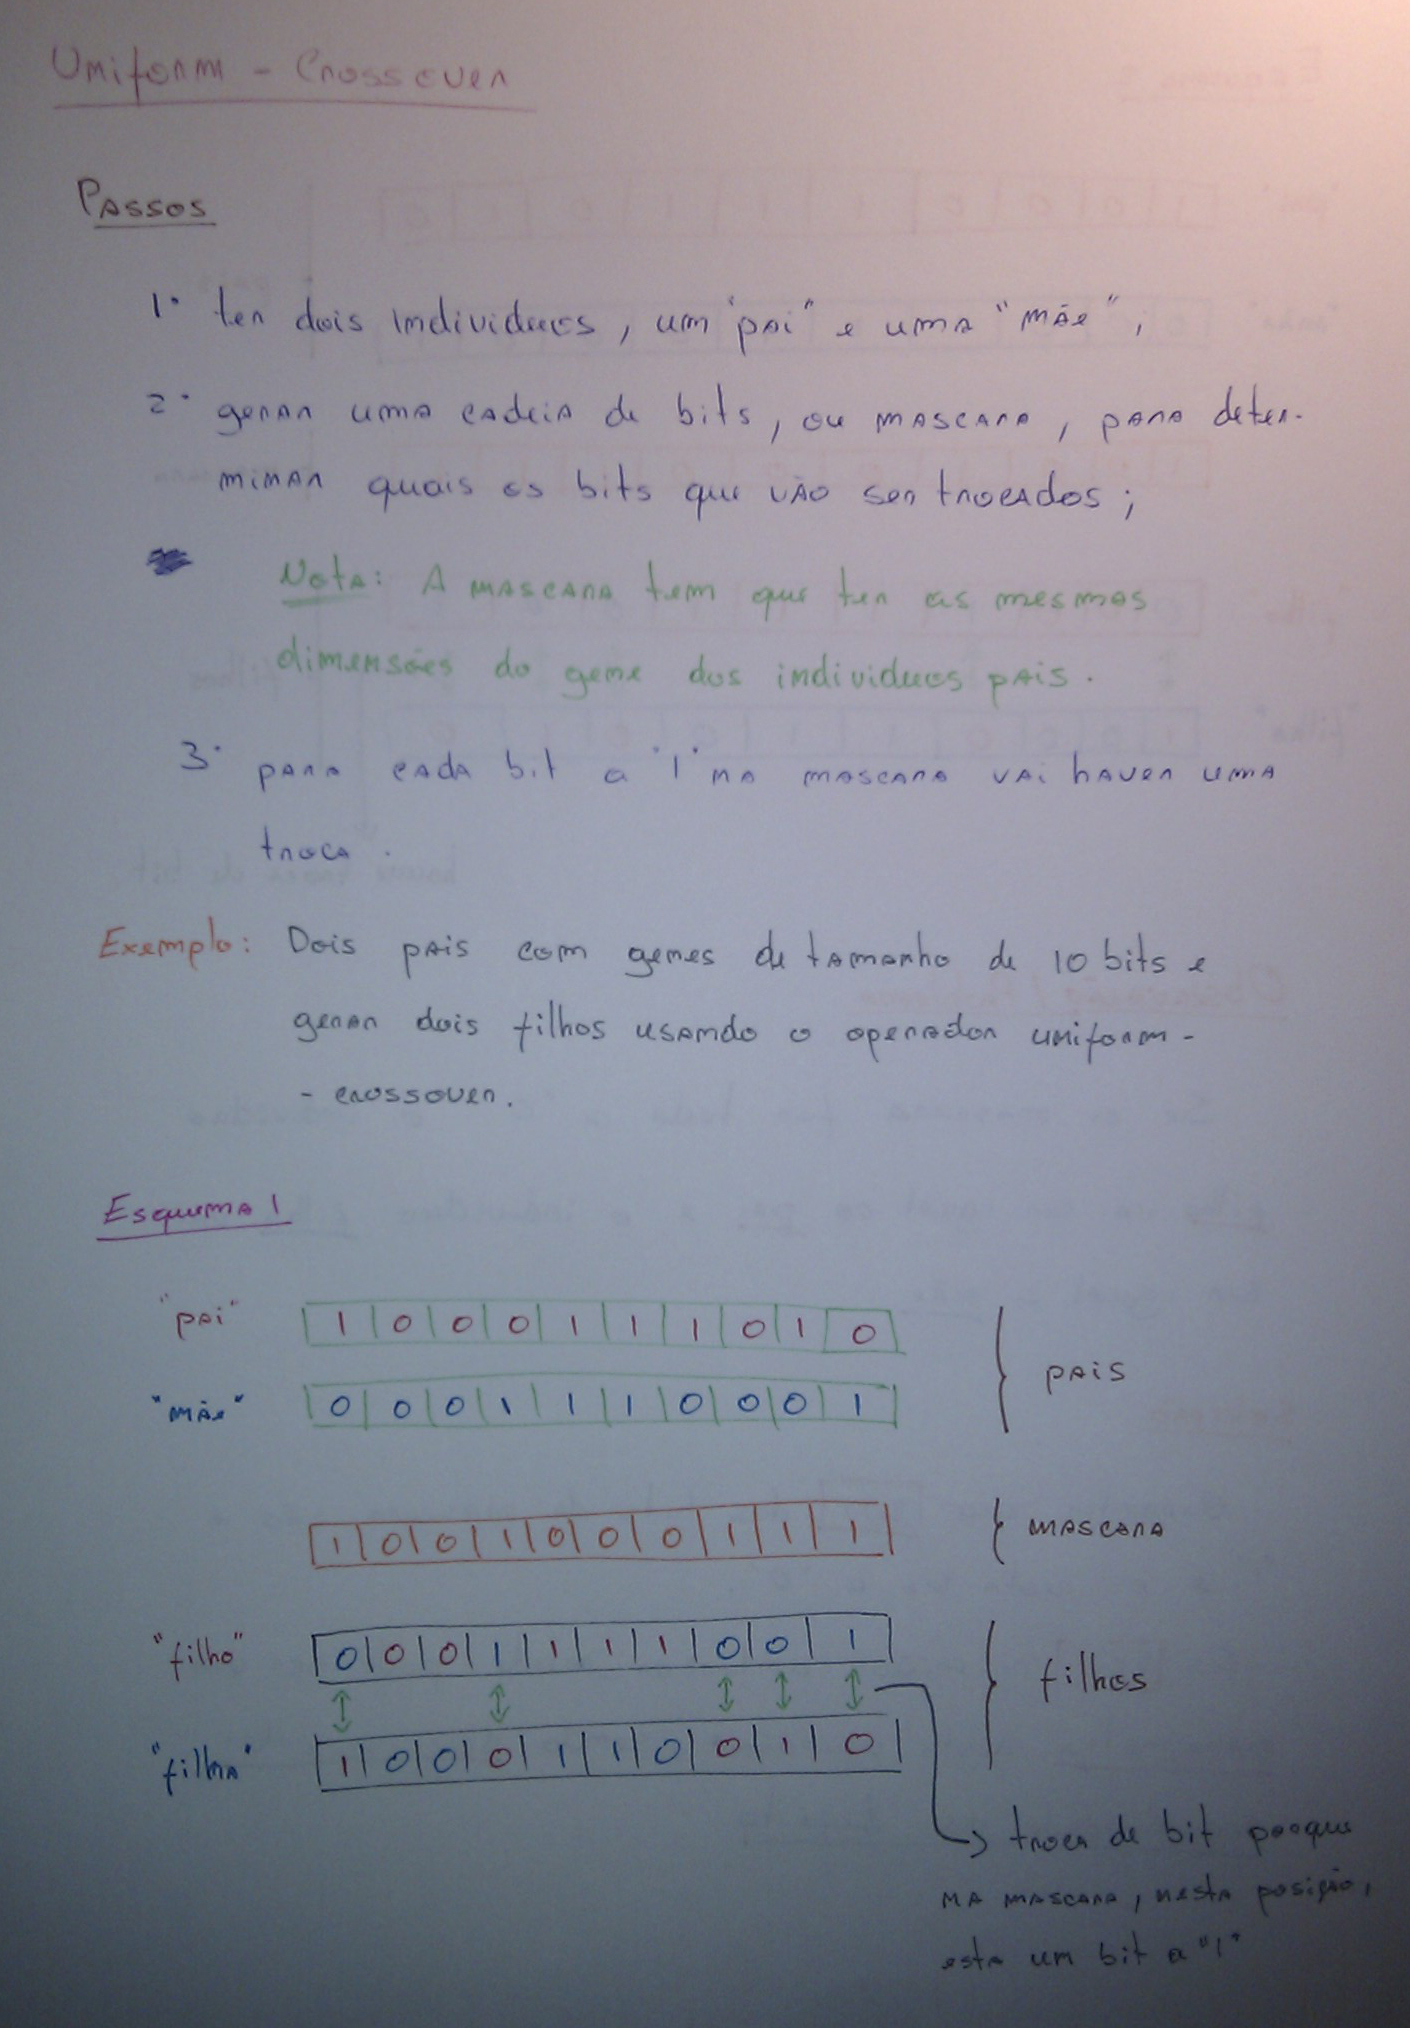 Uniform - Crossover
Passos
1º ter dois individuos, um "pai" e uma "mãe",
2º gerar uma cadeia de bits, ou mascara, para deter-
minar quais os bits que vão ser trocados;
Nota: A mascara tem que ter as mesmas
dimensões do gene dos individuos pais.
3º para cada bit a "1" na mascara vai haver uma
troca.
Exemplo: Dois pais com genes de tamanho de 10 bits e
gerar dois filhos usando o operador uniform -
- crossover.
Esquema 1
"pai" 1 0 0 0 1 1 1 0 1 0
pais
"mãe" 0 0 0 1 1 1 0 0 0 1
1 0 0 1 0 0 0 1 1 1 mascara
"filho" 0 0 0 1 1 1 1 0 0 1
filhos
"filha" 1 0 0 0 1 1 0 0 1 0
troca de bit porque
na mascara, nesta posição,
esta um bit a "1"